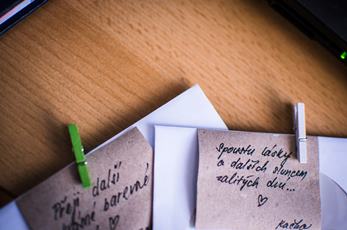 Přeji další
barevné
Spoustu lásky
a dalších sluncem
zalitých dnů...
Kačka